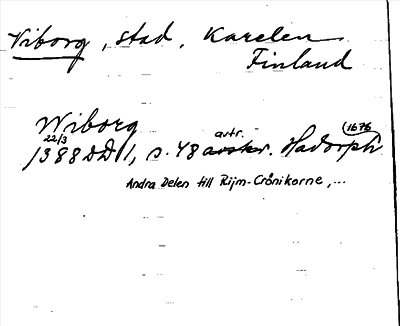 Viborg, stad, Karelen
Finland
Wiborg
22/3 avtr. 1676
1388 DD 1, s. 48 avskr. Hadorph
Andra Delen till Rijm-Crönikorne,...